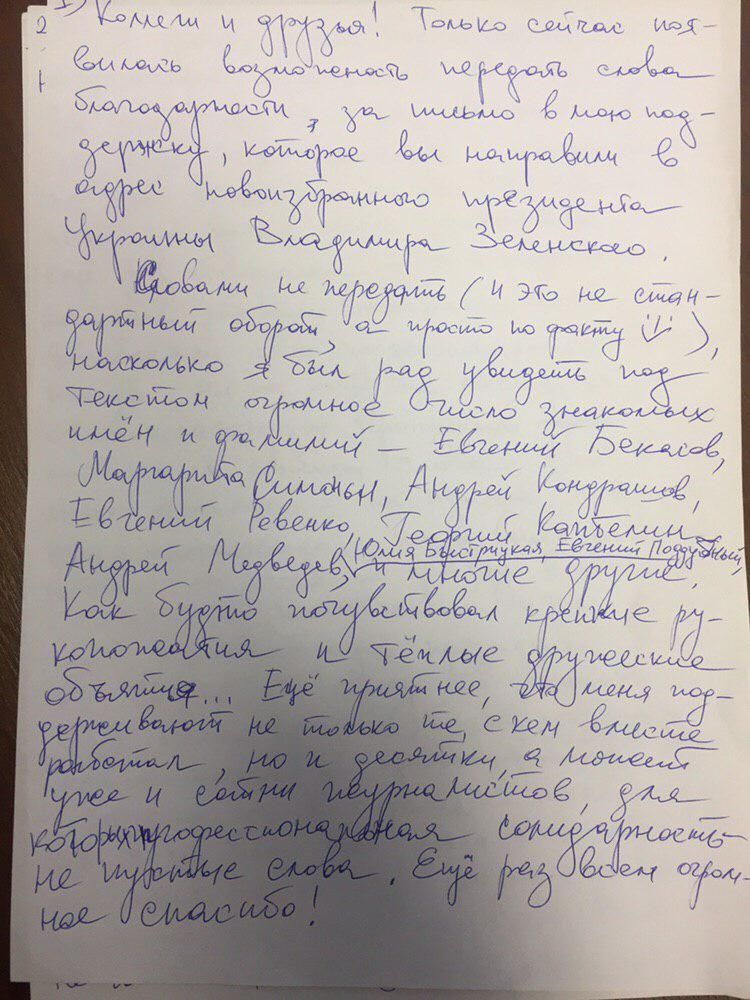 1) Коллеги и друзья! Только сейчас поя-
вилась возможность передать слова
благодарности, за письмо в мою под-
держку, которое вы направили в
адрес новоизбранного президента
Украины Владимира Зеленского.
Словами не передать (и это не стан-
дартный оборот, а просто по факту),
насколько я был рад увидеть под
текстом огромное число знакомых
имён и фамилий – Евгений Бекасов,
Маргарита Симоньян, Андрей Кондрашов,
Евгений Ревенко, Георгий Каптелин
Юлия Быстрицкая, Евгений Поддубный,
Андрей Медведев, и многие другие.
Как будто почувствовал крепкие ру-
копожатия и тёплые дружеские
объятия... Ещё приятнее, что меня под-
держивают не только те, с кем вместе
работал, но и десятки, а может
уже и сотни журналистов, для
которых профессиональная солидарность
не пустые слова. Ещё раз всем огром-
ное спасибо!